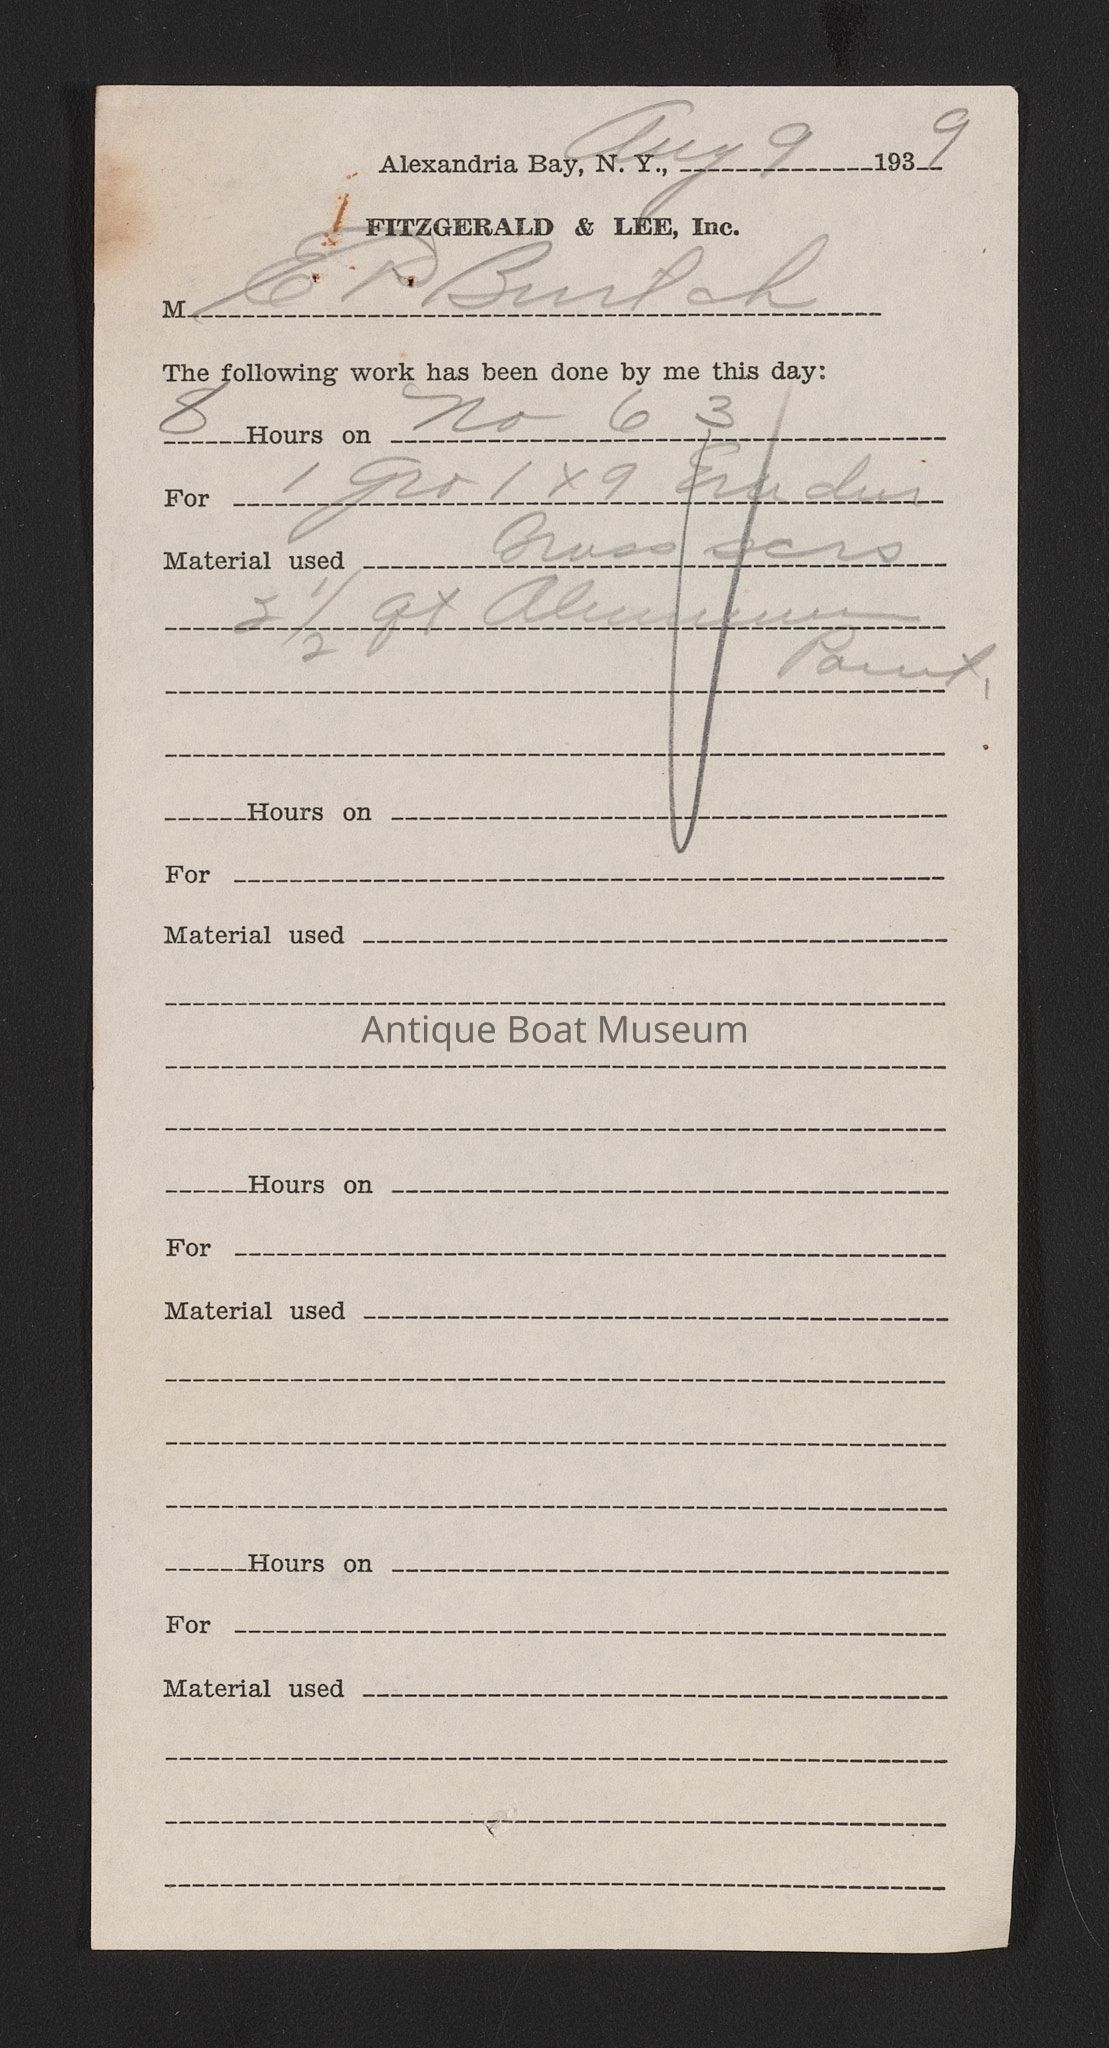 Alexandria Bay, N. Y., Aug 9 1939
FITZGERALD & LEE, Inc.
M E P Burtch
The following work has been done by me this day:
8 Hours on No 63
For 1 Gro 1 x 9
Material used Brass scrs
1/2 qt Aluminum
Paint,
Hours on
For
Material used
Antique Boat Museum
Hours on
For
Material used
Hours on
For
Material used